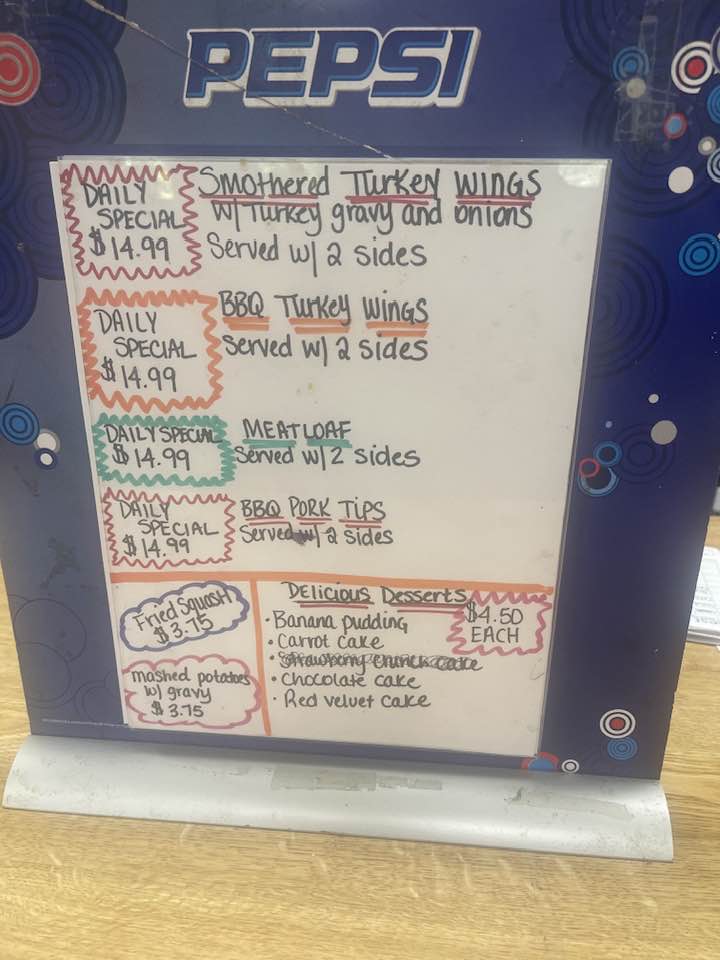 PEPSI
DAILY
SPECIAL
$14.99
Smothered Turkey Wings
w/Turkey gravy and onions
Served w/ 2 sides
DAILY
SPECIAL
$14.99
BBQ Turkey Wings
Served w/ 2 sides
DAILY SPECIAL
$14.99
MEATLOAF
Served w/ 2 sides
DAILY
SPECIAL
$14.99
BBQ PORK TIPS
Served w/ 2 sides
Fried Squash
$3.75
mashed potatoes
w/ gravy
$3.75
Delicious Desserts
$4.50
EACH
• Banana pudding
• Carrot cake
• Strawberry Crunch cake
• Chocolate cake
• Red velvet cake